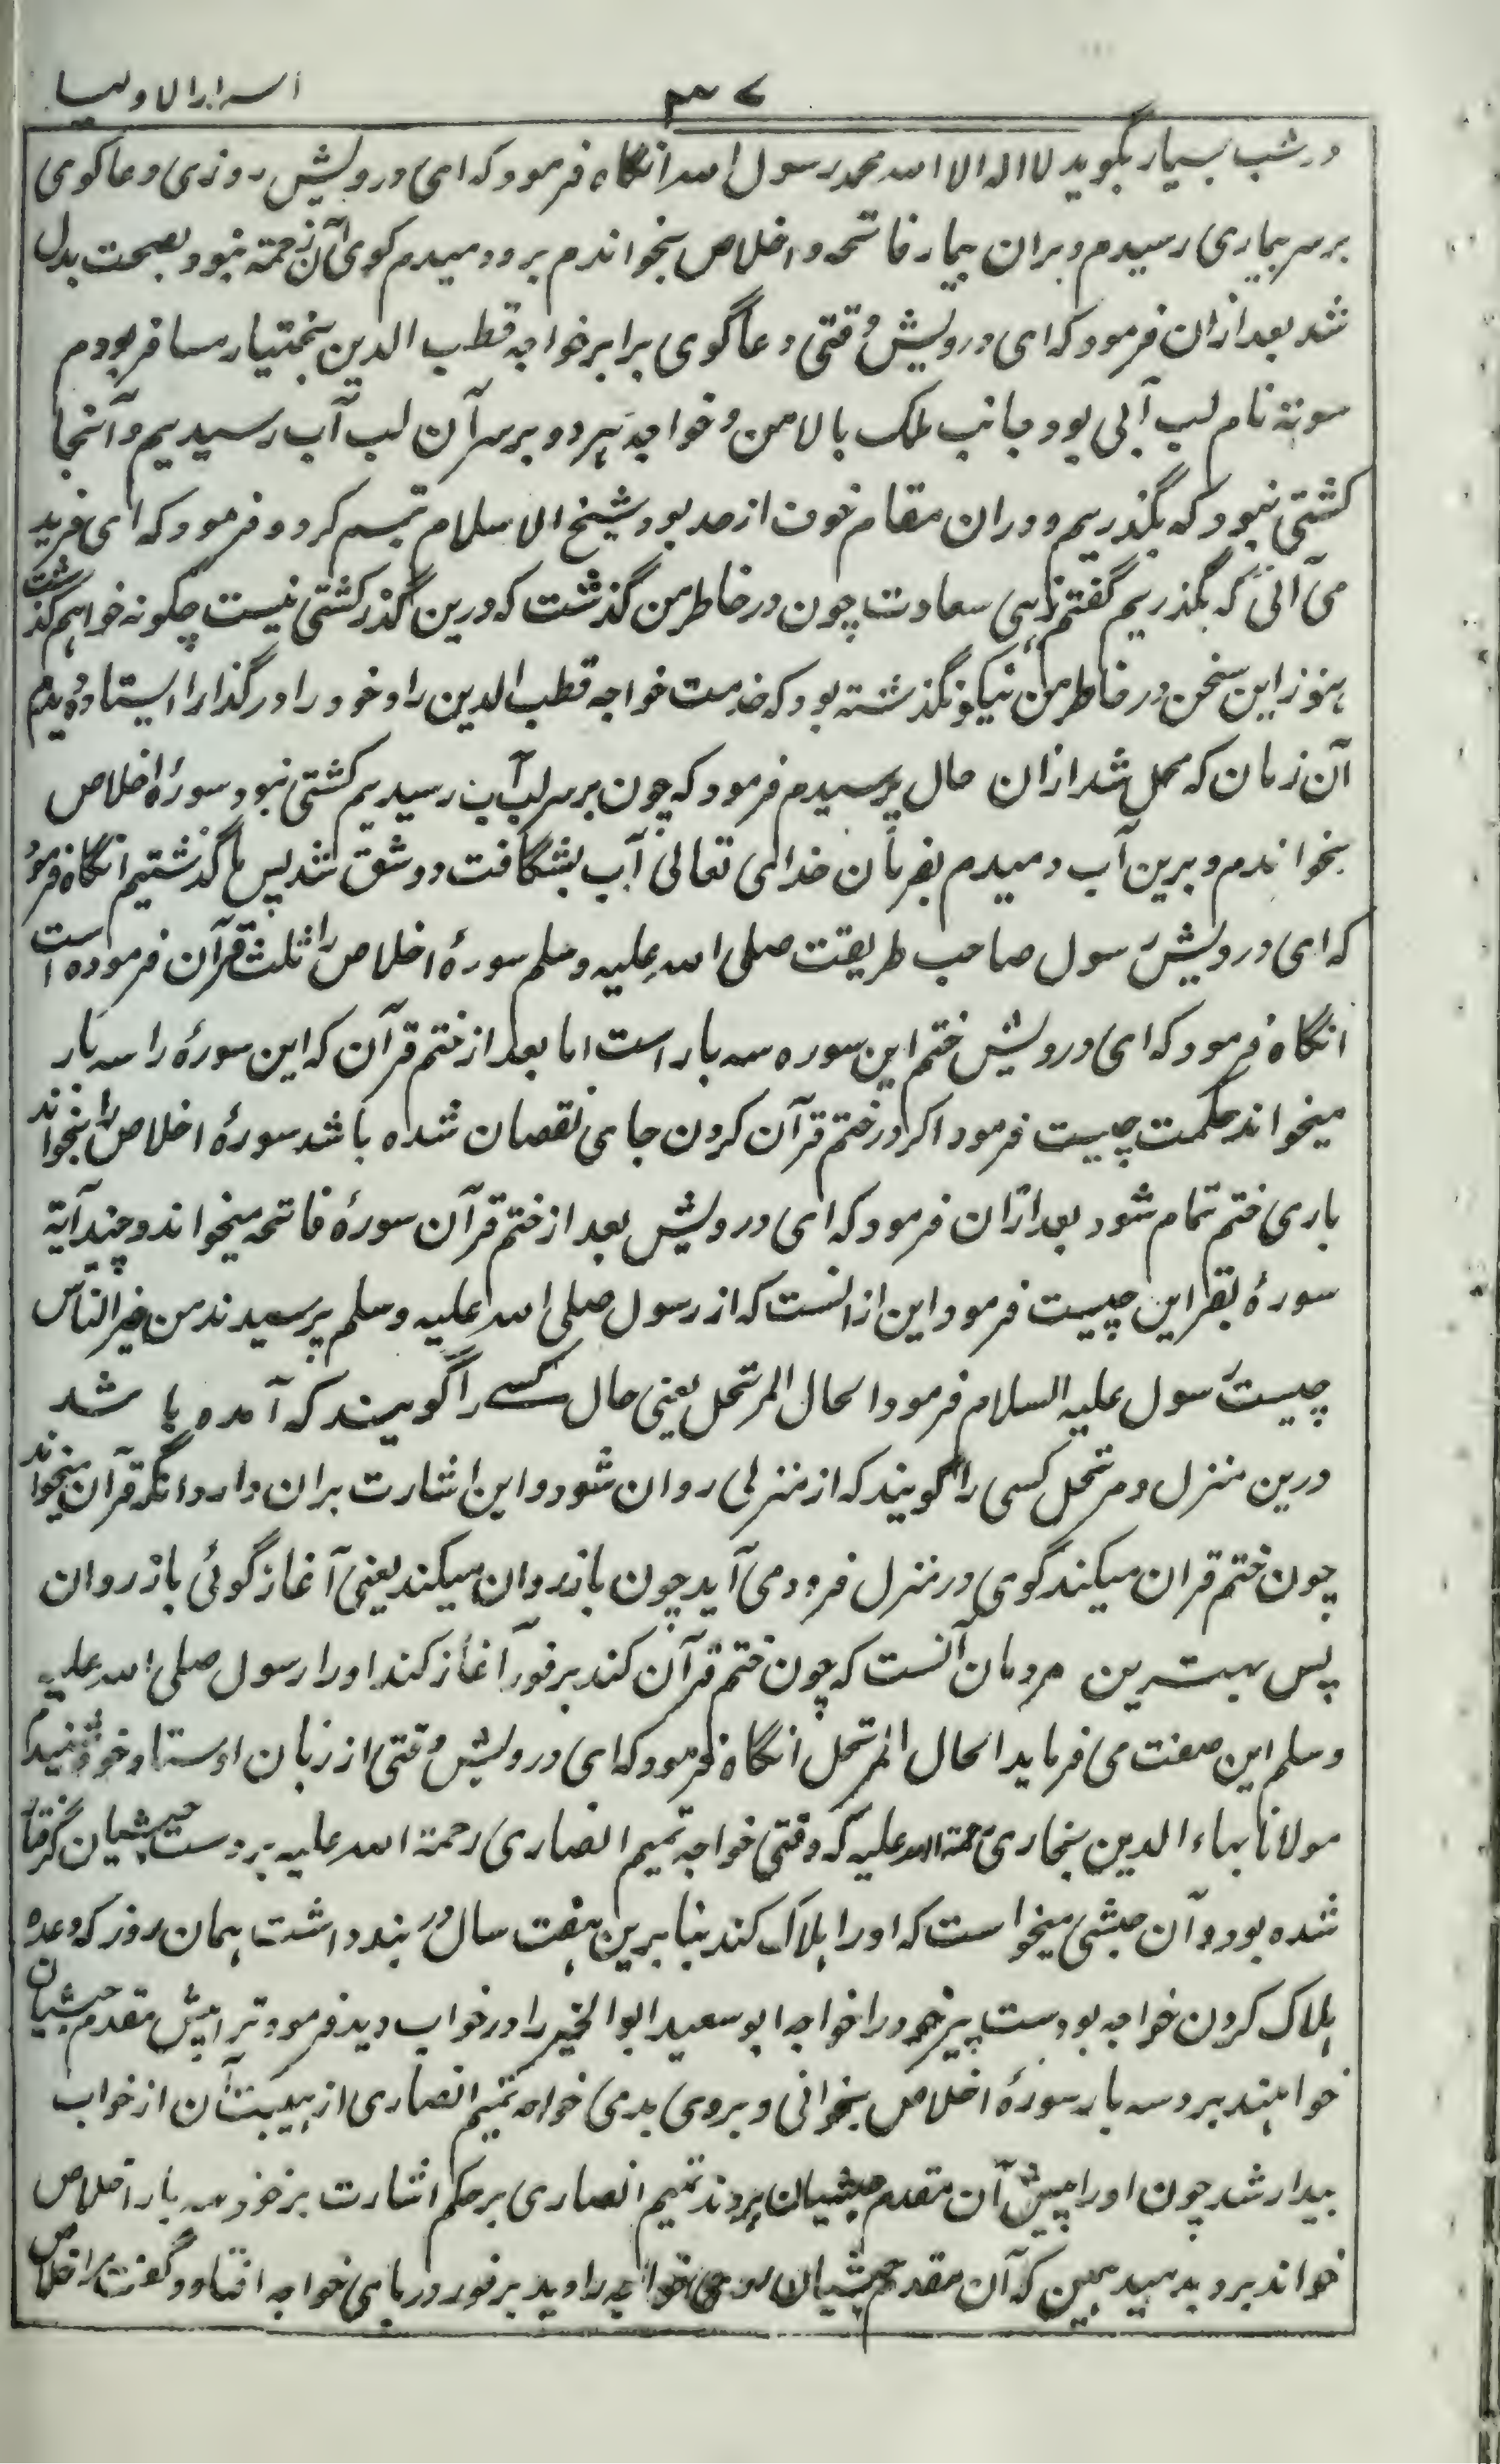 اسرار الاولیا
در شب بسیار بگوید لا اله الا الله محمد رسول الله انگاه فرمود که ای درویش روزی دعا گوی
بر سر بیماری رسیدم و بران بیمار فاتحه و اخلاص بخواندم برو دمیدم گوی آن زحمت نبود بصحت بدل
شد بعد ازان فرمود که ای درویش وقتی دعا گوی برابر خواجه قطب الدین بختیار مسافر بودم
نام لب آبی بود جانب ملک بالا من و خواجه هردو بر سر آن لب آب رسیدیم و آنجا
کشتی نبود که بگذریم و دران مقام خوف از حد بود شیخ الاسلام تبسم کرد و فرمود که ای فرید
می آئی که بگذریم گفتم زهی سعادت چون در خاطر من گذشت که درین گذر کشتی نیست چگونه خواهم گذشت
هنوز این سخن در خاطر من نیکو نگذشته بود که خدمت خواجه قطب الدین را و خود را در گذارا ایستاده دیدم
آن زمان که محل شد ازان حال پرسیدم فرمود که چون بر سر لب آب رسیدیم کشتی نبود سورهٔ اخلاص
بخواندم و برین آب دمیدم بفرمان خدای تعالی آب بشگافت و دو شق شد پس ما گذشتیم انگاه فرمود
که ای درویش رسول صاحب طریقت صلی الله علیه وسلم سورهٔ اخلاص را ثلث قرآن فرموده است
انگاه فرمود که ای درویش ختم این سوره سه بار است اما بعد از ختم قرآن که این سورهٔ را سه بار
میخواند حکمت چیست فرمود اگر در ختم قرآن کردن جای نقصان شده باشد سورهٔ اخلاص را بخواند
باری ختم تمام شود بعد ازان فرمود که ای درویش بعد از ختم قرآن سورهٔ فاتحه میخواند و چند آیة
سورهٔ بقر این چیست فرمود این از انست که از رسول صلی الله علیه وسلم پرسیدند من خیر الناس
چیست رسول علیه السلام فرمود الحال المرتحل یعنی حال کسے را گویند که آمده باشد
درین منزل و مرتحل کسی را گویند که از منزلی روان شود و این اشارت بران دارد انگه قرآن میخواند
چون ختم قران میکند گوی در منزل فرود می آید چون باز روان میکند یعنی آغاز گوئی باز روان
پس بهترین مردمان آنست که چون ختم قرآن کند بر فور آغاز کند او را رسول صلی الله علیه
وسلم این صفت می فرماید الحال المرتحل انگاه فرمود که ای درویش وقتی از زبان اوستاد خود شنیدم
مولانا بهاء الدین بخاری رحمة الله علیه که وقتی خواجه تمیم انصاری رحمة الله علیه بر دست حبشیان گرفتار
شده بود و آن حبشی میخواست که او را هلاک کند بنابرین هفت سال در بند داشت همان روز که وعده
هلاک کردن خواجه بود دست پیر خود را خواجه ابو سعید ابو الخیر را در خواب دید فرمود ترا پیش مقدم حبشیان
خواهند برد سه بار سورهٔ اخلاص بخوانی و بروی بدمی خواجه تمیم انصاری از هیبت آن از خواب
بیدار شد چون او را پیش آن مقدم حبشیان بردند تمیم انصاری بر حکم اشارت بزخود سه بار اخلاص
خواند برو بدمید همین که آن مقدم حبشیان روی خواجه را دید بر فور در پای خواجه افتاد و گفت مرا خلاص